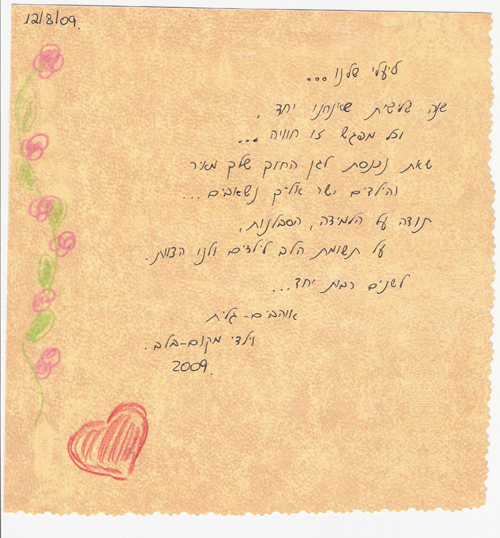 12/8/09.
ליעלי שלנו...
שנה שלישית שאנחנו יחד,
וכל מפגש זו חוויה...
שאת נכנסת לגן החיוך שלך מאיר
והילדים ישר אליך נשאבים...
תודה על הלמידה, הסבלנות,
על תשומת הלב לילדים ולנו הצוות.
לשנים רבות יחד...
אוהבים - גלית
וילדי מקום-בלב.
2009.